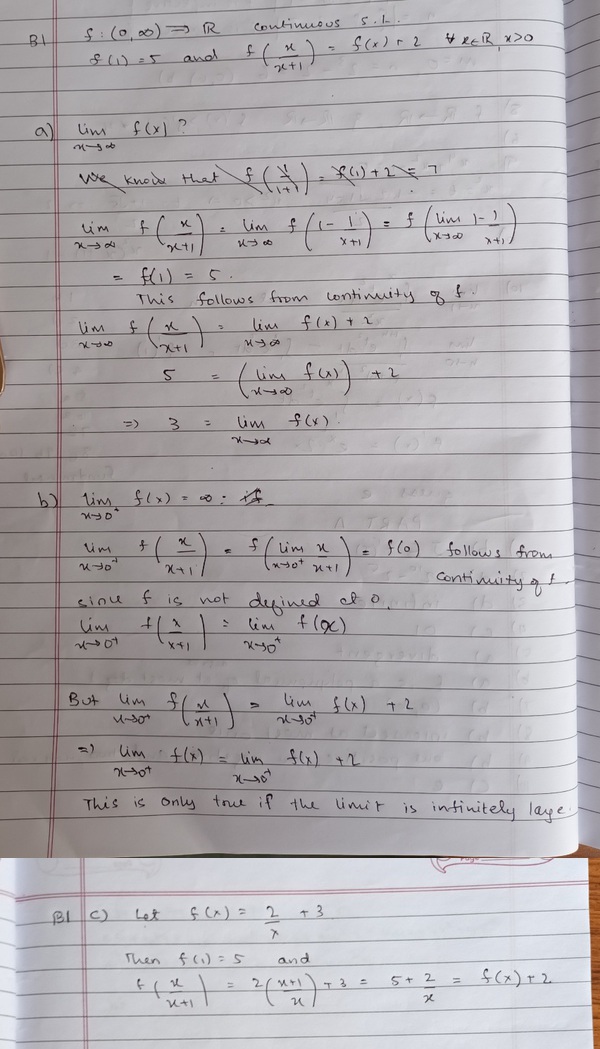 B1 f : (0, ∞) → ℝ continuous s.t.
f(1) = 5 and f(x/(x+1)) = f(x) + 2 ∀ x∈ℝ, x>0
a) lim_{x→∞} f(x) ?
We know that f(1/(1+1)) = f(1) + 2 = 7
lim_{x→∞} f(x/(x+1)) = lim_{x→∞} f(1 - 1/(x+1)) = f(lim_{x→∞} 1 - 1/(x+1))
= f(1) = 5.
This follows from continuity of f.
lim_{x→∞} f(x/(x+1)) = lim_{x→∞} f(x) + 2
5 = (lim_{x→∞} f(x)) + 2
⇒ 3 = lim_{x→∞} f(x).
b) lim_{x→0⁺} f(x) = ∞ : if
lim_{x→0⁺} f(x/(x+1)) = f(lim_{x→0⁺} x/(x+1)) = f(0) follows from
continuity of f.
since f is not defined at 0,
lim_{x→0⁺} f(x/(x+1)) = lim_{x→0⁺} f(x)
But lim_{x→0⁺} f(x/(x+1)) = lim_{x→0⁺} f(x) + 2
⇒ lim_{x→0⁺} f(x) = lim_{x→0⁺} f(x) + 2
This is only true if the limit is infinitely large.
B1 c) Let f(x) = 2/x + 3
Then f(1) = 5 and
f(x/(x+1)) = 2((x+1)/x) + 3 = 5 + 2/x = f(x) + 2